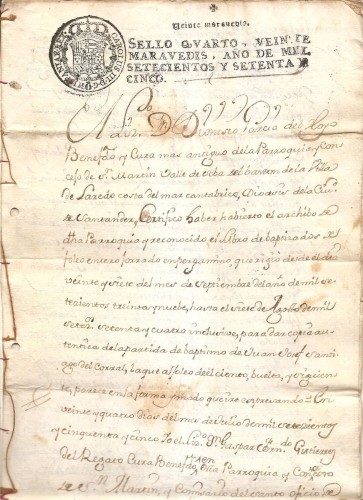 Veinte maravedis.
SELLO QVARTO, VEINTE
MARAVEDIS, AÑO DE MIL
SETECIENTOS Y SETENTA Y
CINCO.
CAROLUS III D G
Dionisio Garcia de
Benefdo y Cura mas antiguo de la Parroquia, y Con
de Sn Martin Valle de de la Villa
de Laredo costa del mar cantabrico, Diocesis de la Ciud
de Santander, Certifico haber habierto el archibo de
dha Parroquia y reconocido el Libro de baptizados
foleo entero forrado en pergamino que rigio desde el dia
veinte y siete del mes de Septiembre del año de mil se
tezientos treinta y nuebe, hasta el siete de Agosto de mil
setos setenta y quatro inclusive, para dar copia au
tentica de la partida de baptismo de Juan Josef Santi
ago del Corral, la que al foleo del ciento, buelta, y siguien
te, parece en la forma y modo que se expresando = En
veinte y quatro dias del mes de Julio de mil setezientos
y cinquenta y cinco Yo el Gaspar Gutierrez
del Regato Cura Benefdo Parroquia y
Sn Martin, y Comisario del Santo oficio de